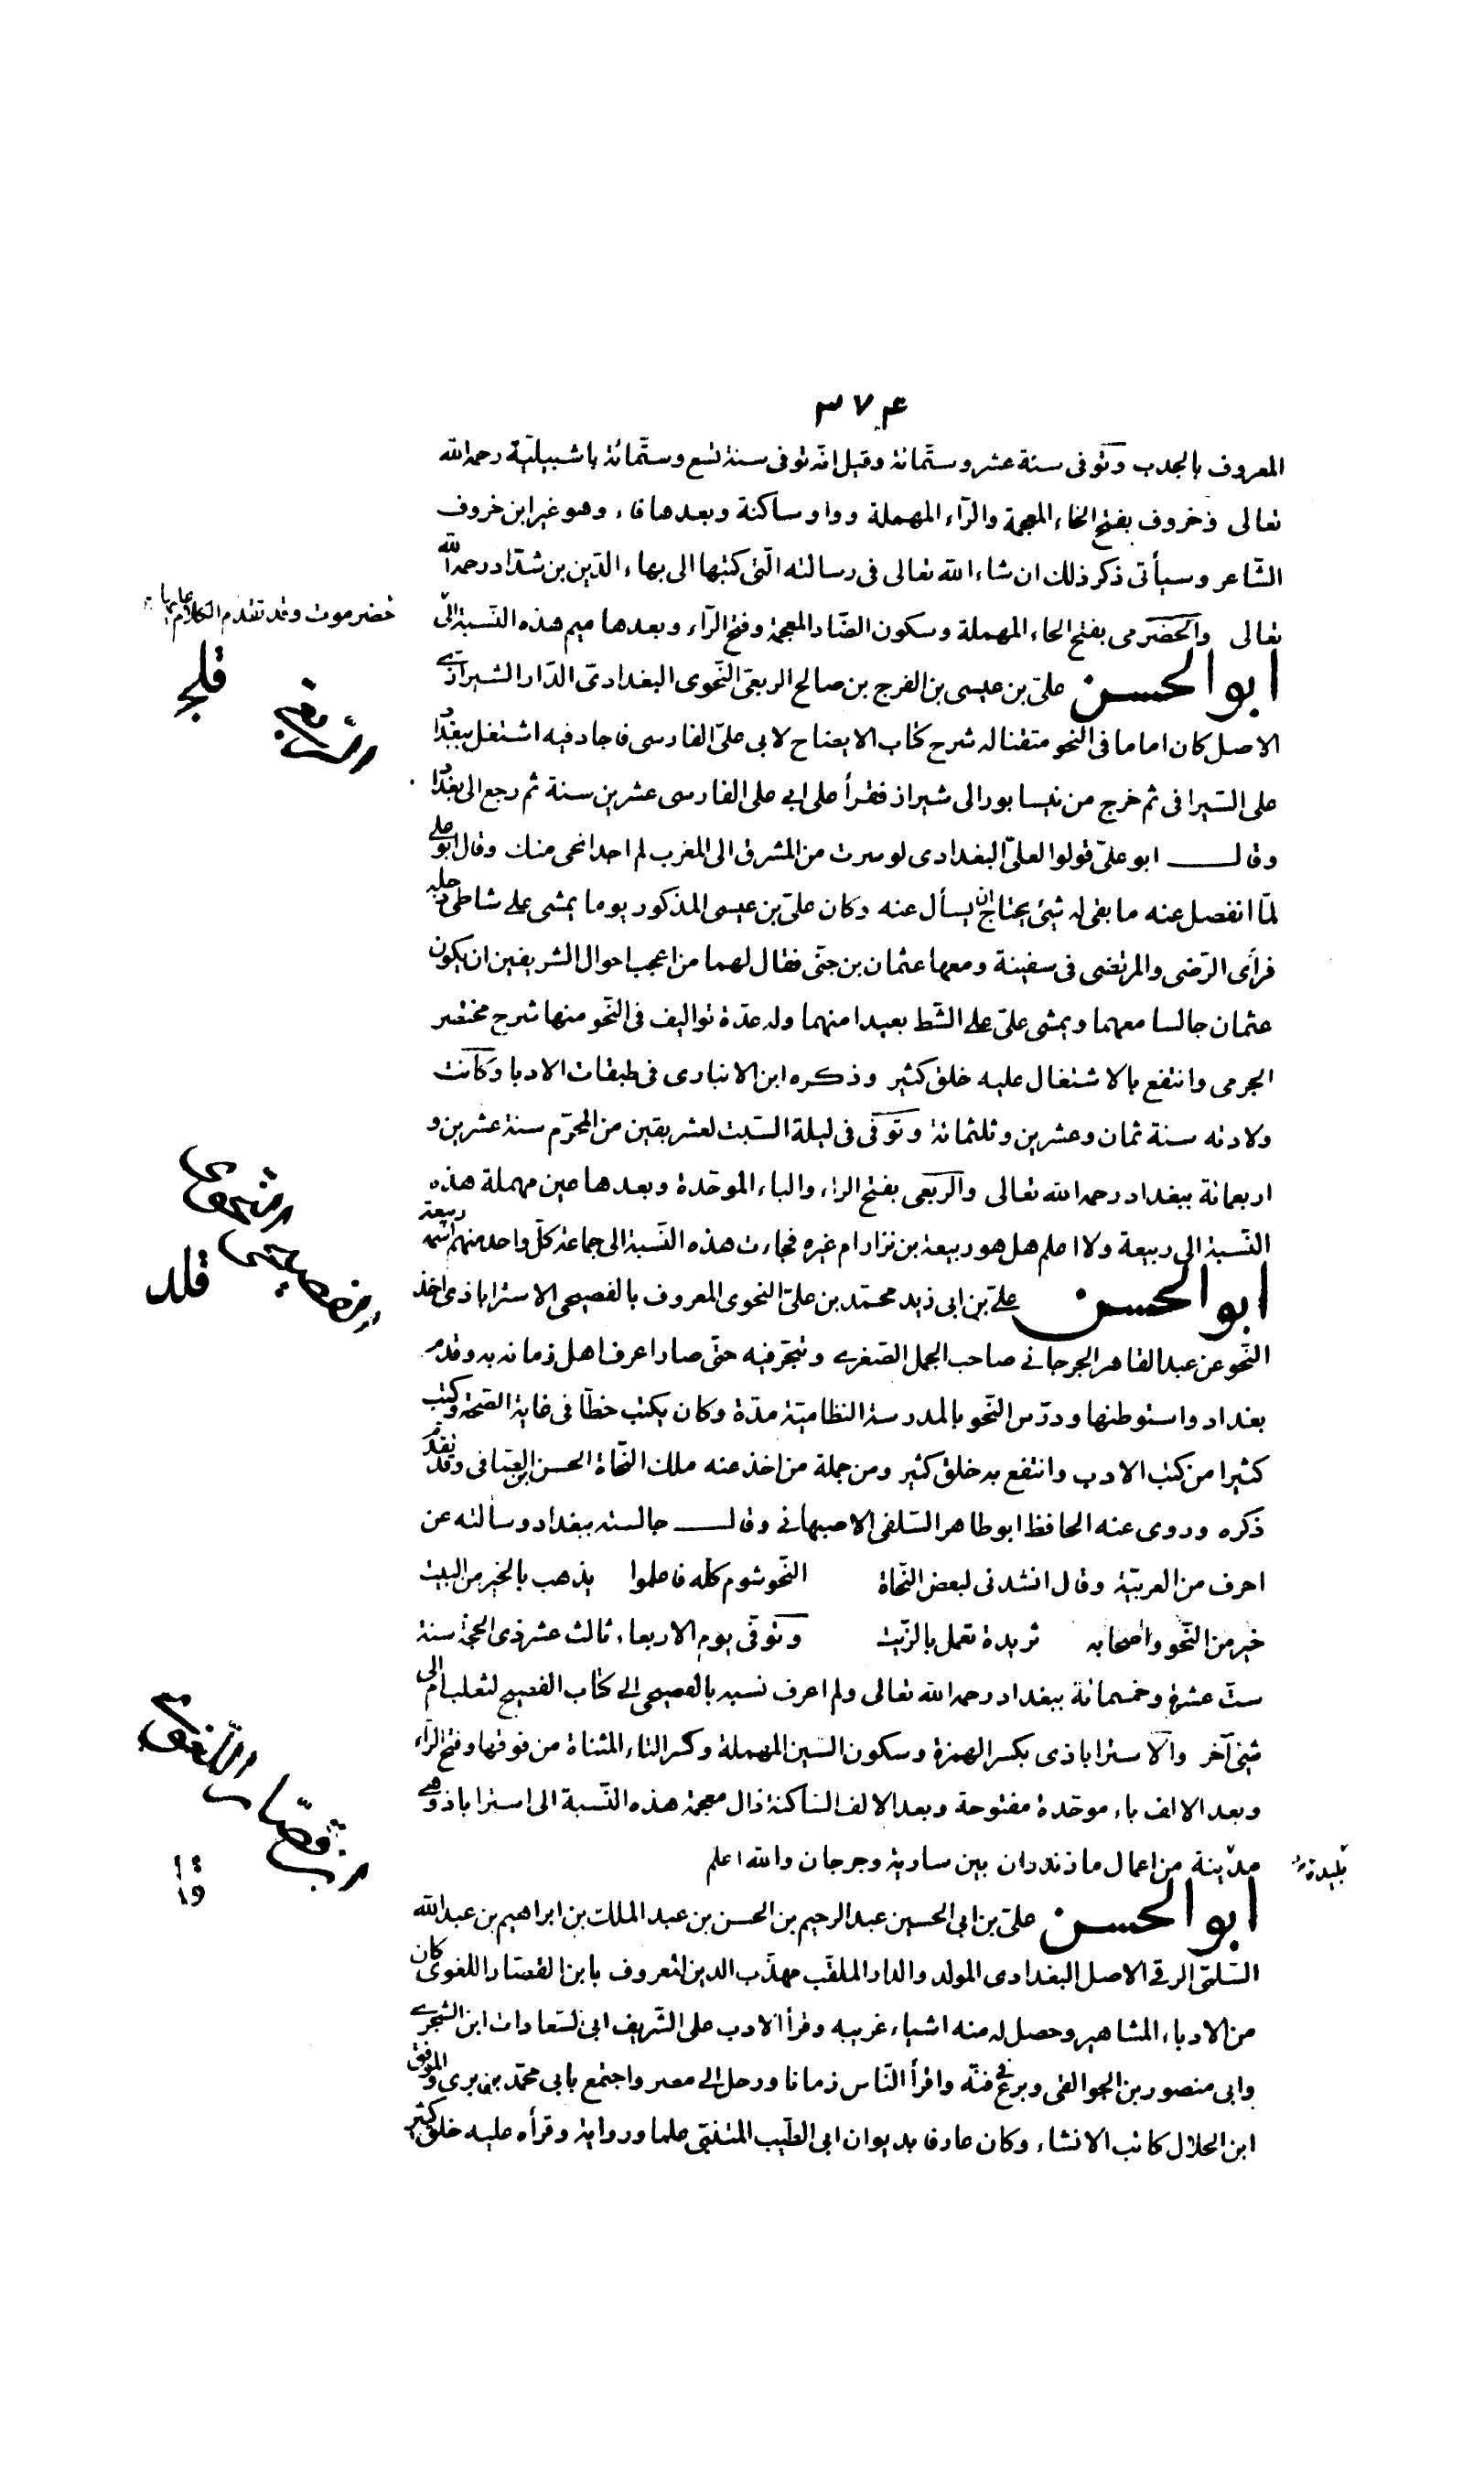 ٣٧۴
المعروف بالجدب وتوفى سنة عشر وستمائة وقيل انه توفى سنة تسع وستمائة باشبيلية رحمه الله
تعالى وخروف بفتح الخاء المعجمة والراء المهملة وواو ساكنة وبعدها فاء وهو غير ابن خروف
الشاعر وسيأتى ذكر ذلك ان شاء الله تعالى فى رسالته التى كتبها الى بهاء الدين بن شداد رحمه الله
تعالى والحضرمى بفتح الحاء المهملة وسكون الضاد المعجمة وفتح الراء وبعدها ميم هذه النسبة الى
حضرموت وقد تقدم الكلام عليها
ابو الحسن على بن عيسى بن الفرج بن صالح الربعى النحوى البغدادى الدار الشيرازى
الربعى
الاصل كان اماما فى النحو متقنا له شرح كتاب الايضاح لابى على الفارسى فاجاد فيه اشتغل ببغداد
على السيرافى ثم خرج من نيسابور الى شيراز فقرأ على ابى على الفارسى عشرين سنة ثم رجع الى بغداد
وقال ابو على قولوا لعلى البغدادى لو سرت من المشرق الى المغرب لم اجد انحى منك وقال ابو على
لما انفصل عنه ما بقى له شئ يحتاج ان يسأل عنه وكان على بن عيسى المذكور يوما يمشى على شاطئ دجلة
فرأى الرضى والمرتضى فى سفينة ومعها عثمان بن جنى فقال لهما من اعجب احوال الشريفين ان يكون
عثمان جالسا معهما ويمشى على على الشط بعيدا منهما وله عدة تواليف فى النحو منها شرح مختصر
الجرمى وانتفع بالاشتغال عليه خلق كثير وذكره ابن الانبارى فى طبقات الادبا وكانت
ولادته سنة ثمان وعشرين وثلثمائة وتوفى فى ليلة السبت لعشر بقين من المحرم سنة عشرين و
اربعمائة ببغداد رحمه الله تعالى والربعى بفتح الراء والباء الموحدة وبعدها عين مهملة هذه
النسبة الى ربيعة ولا اعلم هل هو ربيعة بن نزار ام غيره فجاءت هذه النسبة الى جماعة كل واحد منهم اسمه ربيعة
ابو الحسن على بن ابى زيد محمد بن على النحوى المعروف بالفصيحى الاستراباذى اخذ
الفصيحى النحوى
النحو عن عبد القاهر الجرجانى صاحب الجمل الصغرى وتبحر فيه حتى صار اعرف اهل زمانه به وقدم
بغداد واستوطنها ودرس النحو بالمدرسة النظامية مدة وكان يكتب خطا فى غاية الصحة وكتب
كثيرا من كتب الادب وانتفع به خلق كثير ومن جملة من اخذ عنه ملك النحاة الحسن بن الصافى وقد تقدم
ذكره وروى عنه الحافظ ابو طاهر السلفى الاصبهانى وقال جالسته ببغداد وسالته عن
احرف من العربية وقال انشدنى لبعض النحاة النحو شوم كله فاعلموا يذهب بالخير من البيت
خير من النحو واصحابه ثريدة تعمل بالزيت وتوفى يوم الاربعاء ثالث عشر ذى الحجة سنة
ست عشرة وخمسمائة ببغداد رحمه الله تعالى ولم اعرف نسبه بالفصيحى الى كتاب الفصيح لثعلب ام الى
شئ آخر والاستراباذى بكسر الهمزة وسكون السين المهملة وكسر التاء المثناة من فوقها وفتح الراء
وبعد الالف باء موحدة مفتوحة وبعد الالف الساكنة ذال معجمة هذه النسبة الى استراباذ وهى
مدينة من اعمال مازندران بين سارية وجرجان والله اعلم
بليدة
ابو الحسن على بن ابى الحسين عبد الرحيم بن الحسن بن عبد الملك بن ابراهيم بن عبد الله
ابن قصار اللغوى
السلمى الرقى الاصل البغدادى المولد والدار الملقب مهذب الدين المعروف بابن القصار اللغوى كان
من الادباء المشاهير وحصل له منه اشياء غريبه وقرأ الادب على الشريف ابى السعادات ابن الشجرى
وابى منصور بن الجوالقى وبرع فى فنه واقرأ الناس زمانا ورحل الى مصر واجتمع بابى محمد بن برى والموفق
ابن الحلال كاتب الانشاء وكان عارفا بديوان ابى الطيب المتنبى علما ورواية وقرأه عليه خلق كثير